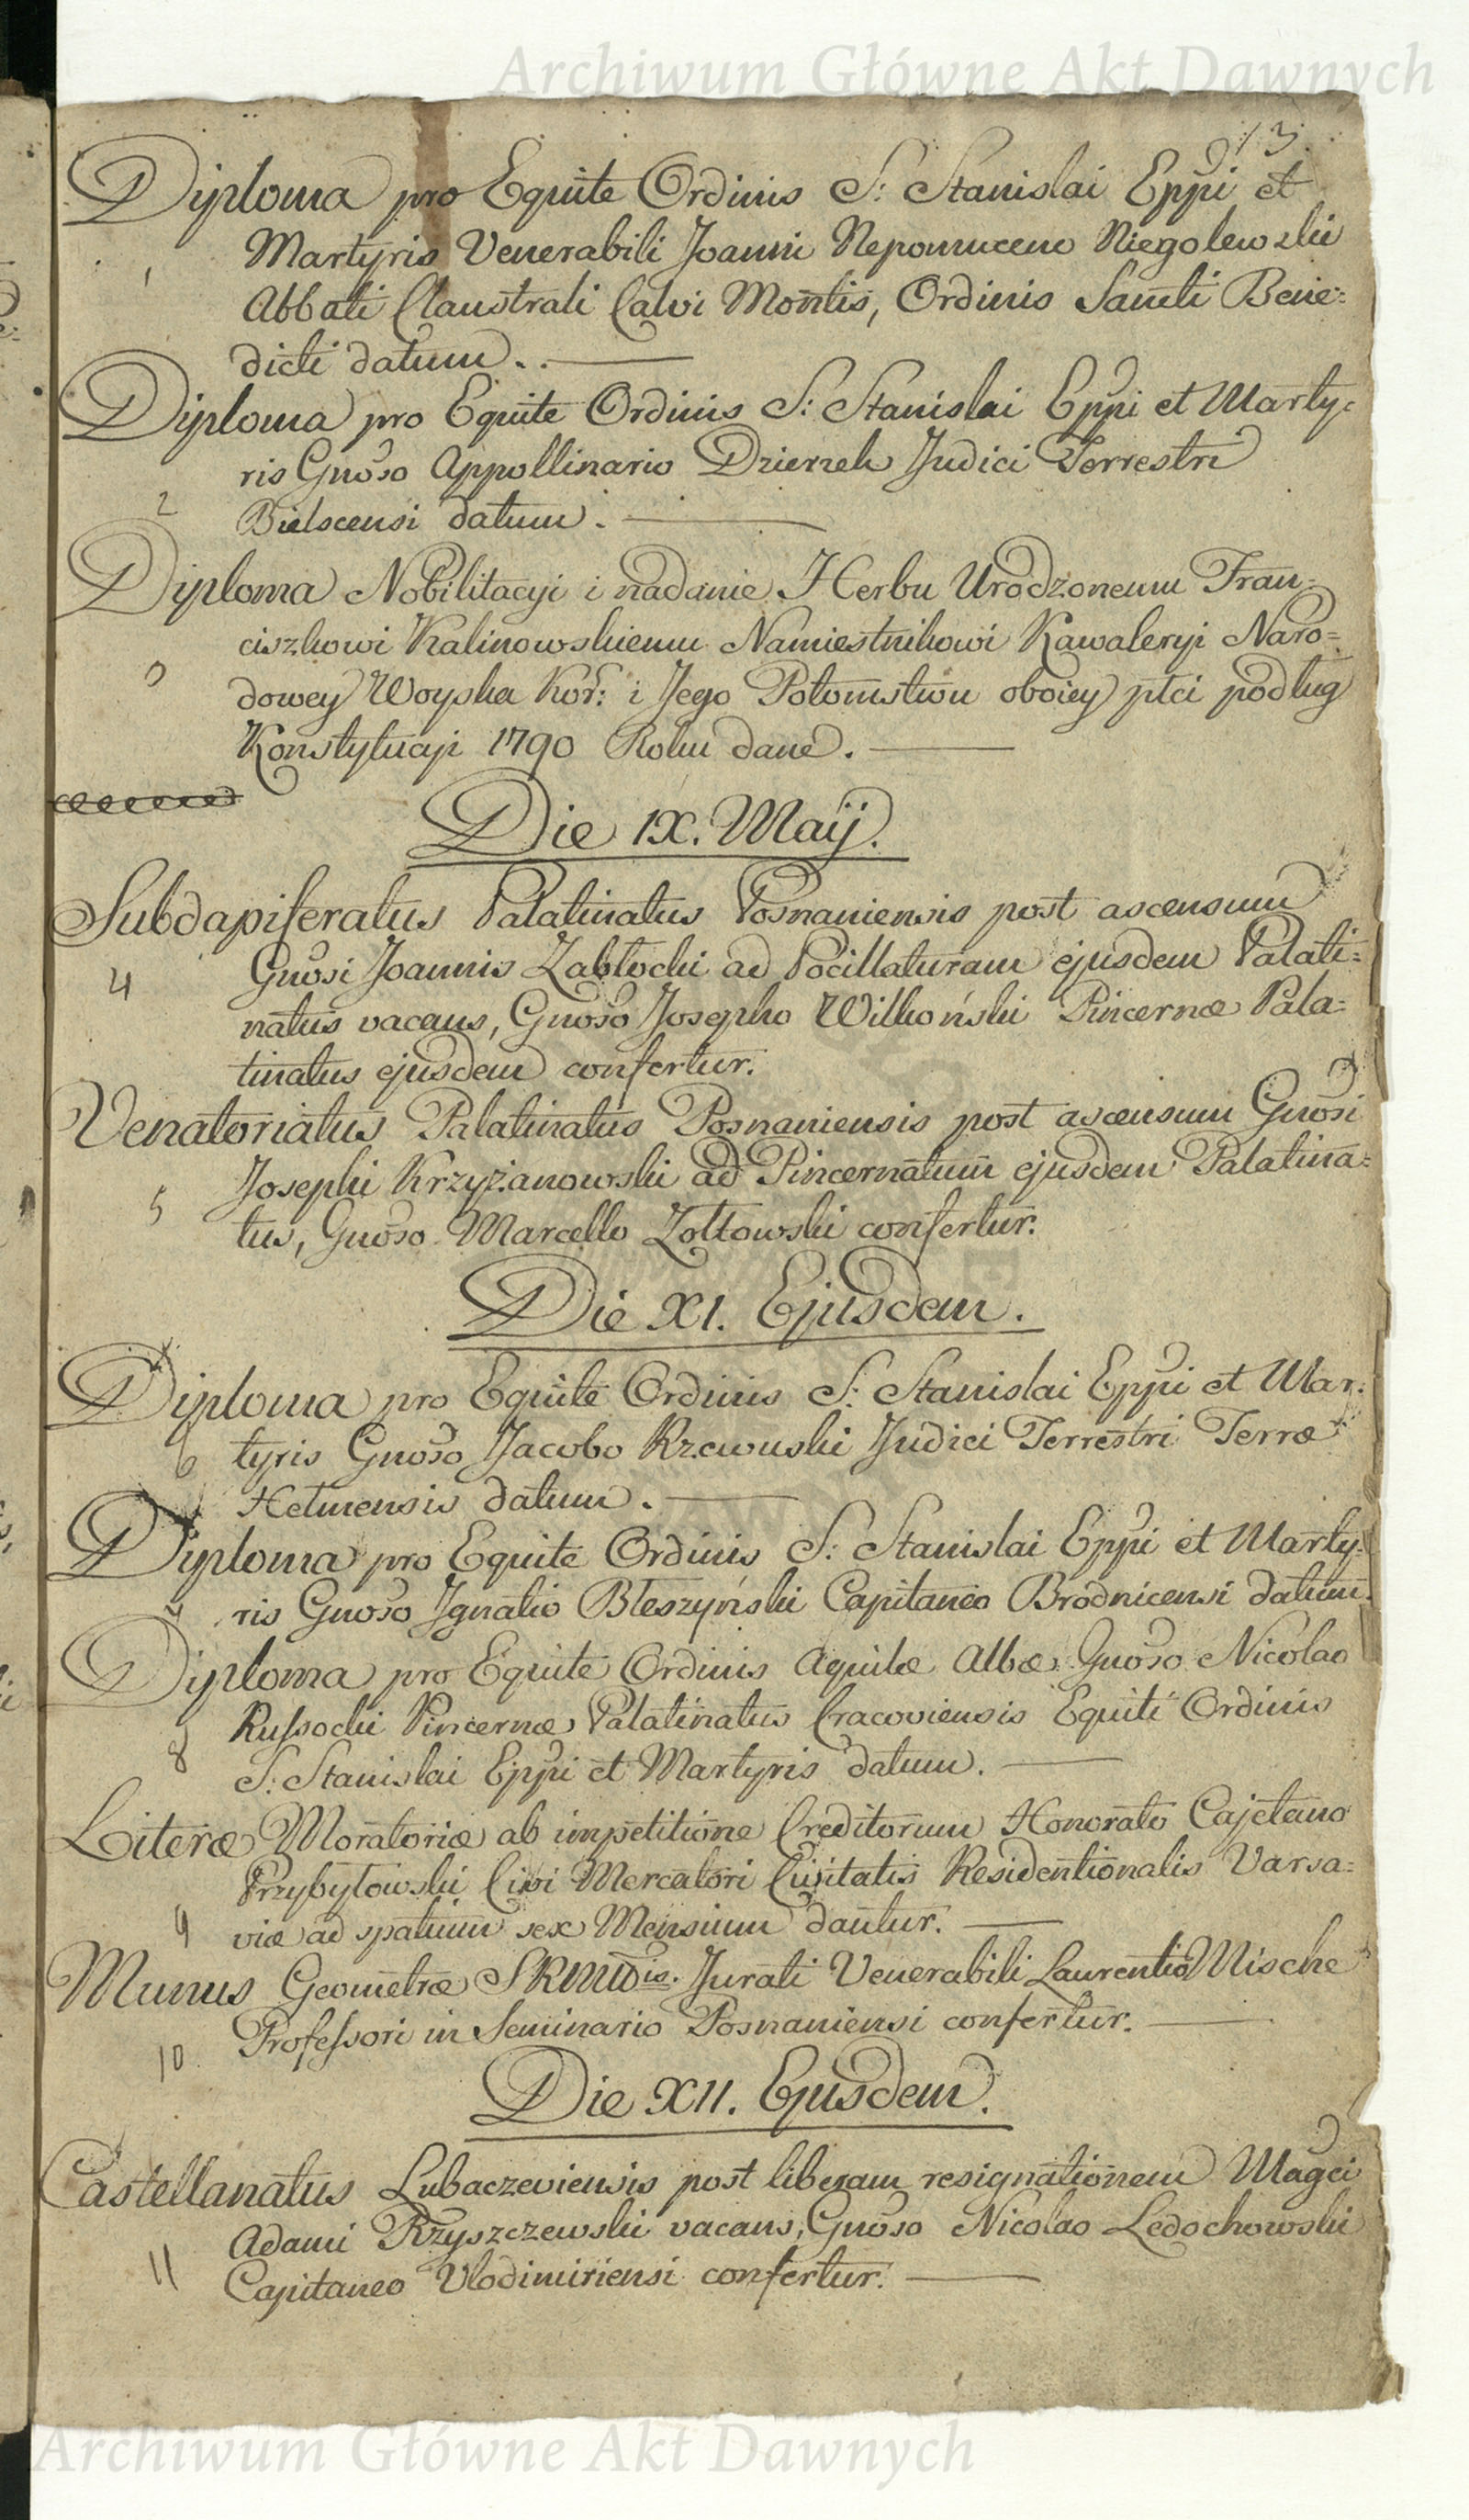 Archiwum Główne Akt Dawnych
13.
Diploma pro Equite Ordinis S: Stanislai Eppi et
Martyris Venerabili Joanni Nepomuceno Niegolewski
1
Abbati Claustrali Calvi Montis, Ordinis Sancti Bene=
dicti datum.
Diploma pro Equite Ordinis S: Stanislai Eppi et Marty=
ris Gnoso Appollinario Dzierzek Judici Terrestri
2
Bielscensi datum.
Diploma Nobilitacyi i nadanie Herbu Urodzonemu Fran=
ciszkowi Kalinowskiemu Namiestnikowi Kawaleryi Naro=
3
dowey Woyska Kor: i Jego Potomstwu oboiey płci podług
Konstytucyi 1790 Roku dane.
Die IX. Maij.
Subdapiferatus Palatinatus Posnaniensis post ascensum
4
Gnosi Joannis Zabłocki ad Pocillaturam ejusdem Palati=
natus vacans, Gnoso Josepho Wilkoński Pincernæ Pala=
tinatus ejusdem confertur.
Venatoriatus Palatinatus Posnaniensis post ascensum Gnosi
Josephi Krzyżanowski ad Pincernatum ejusdem Palatina=
5
tus, Gnoso Marcello Zołtowski confertur.
Die XI. Ejusdem.
Diploma pro Equite Ordinis S: Stanislai Eppi et Mar:
6
tyris Gnoso Jacobo Rzewuski Judici Terrestri Terræ
Helmensis datum.
Diploma pro Equite Ordinis S: Stanislai Eppi et Marty:
7
ris Gnoso Ignatio Bleszyński Capitaneo Brodnicensi datum.
Diploma pro Equite Ordinis Aquilæ Albæ Gnoso Nicolao
Russocki Pincernæ Palatinatus Cracoviensis Equiti Ordinis
8
S: Stanislai Eppi et Martyris datum.
Literæ Moratoriæ ab impetitione Creditorum Honorato Cajetano
Przybyłowski Civi Mercatori Civitatis Residentionalis Varsa=
9
viæ ad spatium sex Mensium dantur.
Munus Geometræ SRMttis. Jurati Venerabili Laurentio Mische
Professori in Seminario Posnaniensi confertur.
10
Die XII. Ejusdem.
Castellanatus Lubaczeviensis post liberam resignationem Magci
Adami Rzyszczewski vacans, Gnoso Nicolao Ledochowski
11
Capitaneo Vlodimiriensi confertur.
Archiwum Główne Akt Dawnych